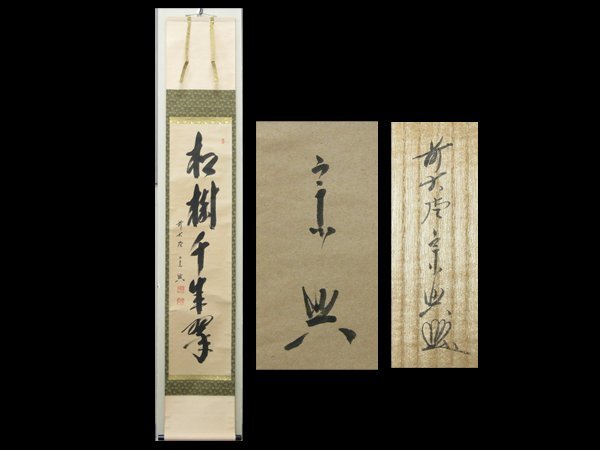 松樹千年翠
前大徳 宗典
宗典
前大徳宗典